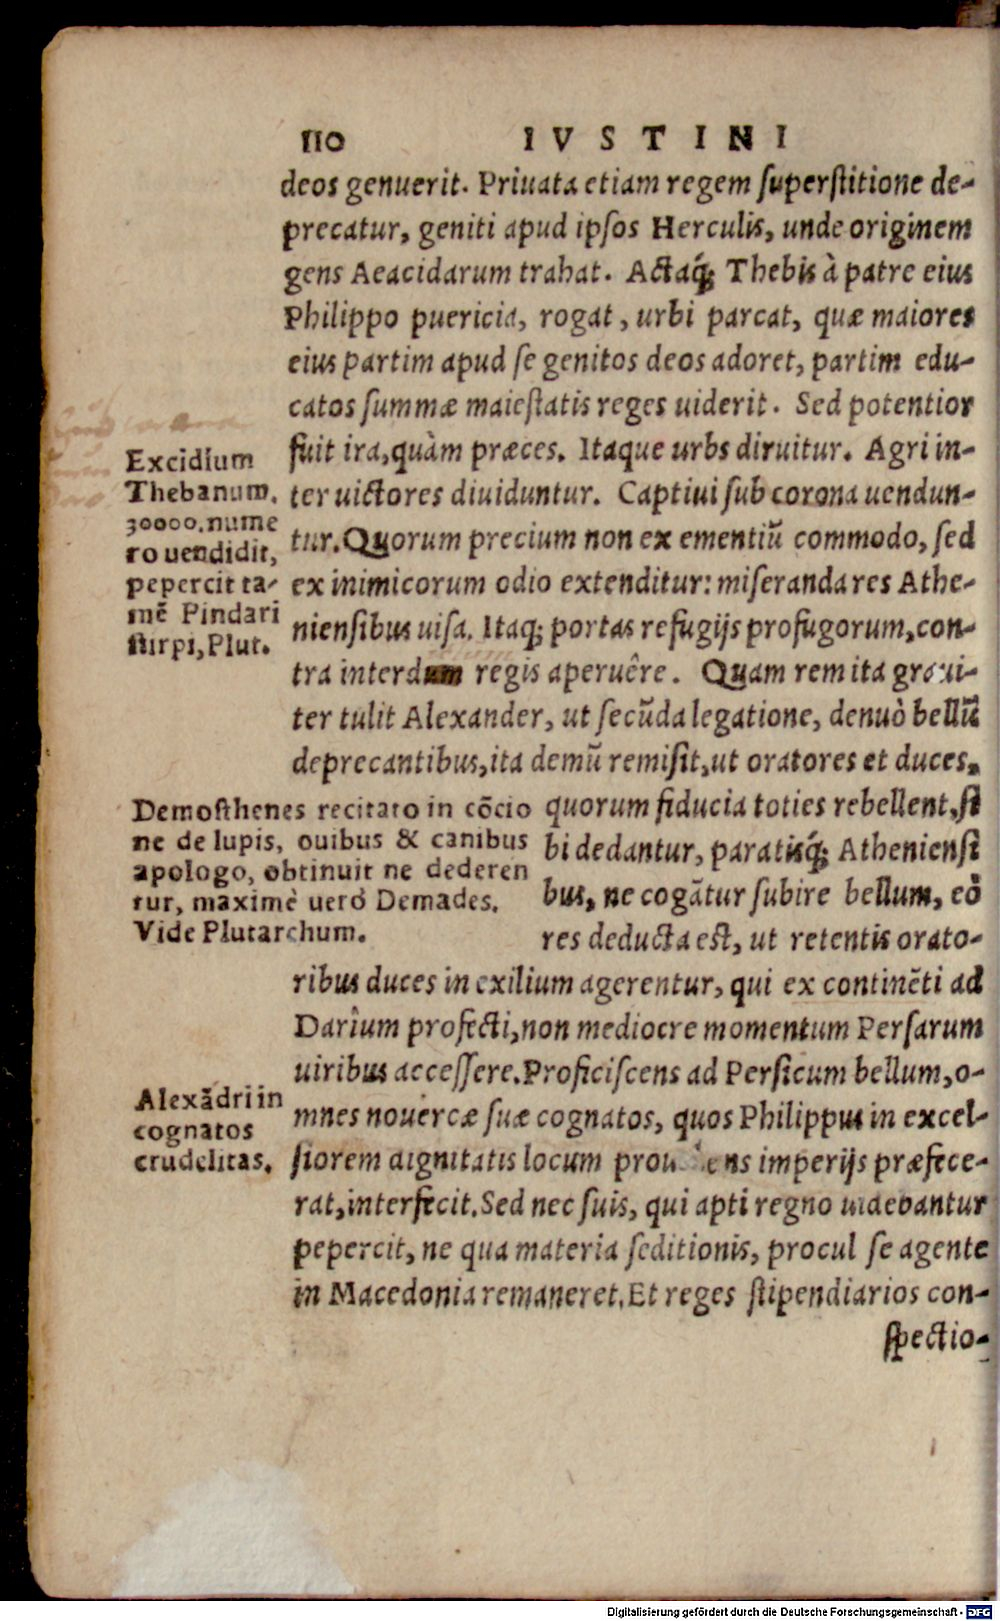 110 IVSTINI
deos genuerit. Priuata etiam regem superstitione de-
precatur, geniti apud ipsos Herculis, unde originem
gens Aeacidarum trahat. Actaq́; Thebis à patre eius
Philippo puericia, rogat, urbi parcat, quæ maiores
eius partim apud se genitos deos adoret, partim edu-
catos summæ maiestatis reges uiderit. Sed potentior
fuit ira, quàm præces. Itaque urbs diruitur. Agri in-
ter uictores diuiduntur. Captiui sub corona uendun-
tur. Quorum precium non ex ementiũ commodo, sed
ex inimicorum odio extenditur: miseranda res Athe-
niensibus uisa. Itaq; portas refugijs profugorum, con-
tra interdum regis aperuêre. Quam rem ita graui-
ter tulit Alexander, ut secũda legatione, denuò bellũ
deprecantibus, ita demũ remisit, ut oratores et duces,
quorum fiducia toties rebellent, si
bi dedantur, paratisq́; Atheniensi
bus, ne cogãtur subire bellum, eò
res deducta est, ut retentis orato-
ribus duces in exilium agerentur, qui ex continẽti ad
Darium profecti, non mediocre momentum Persarum
uiribus accessere. Proficiscens ad Persicum bellum, o-
mnes nouercæ suæ cognatos, quos Philippus in excel-
siorem dignitatis locum imperijs præfece-
rat, interfecit. Sed nec suis, qui apti regno uidebantur
pepercit, ne qua materia seditionis, procul se agente
in Macedonia remaneret. Et reges stipendiarios con-
spectio-
Excidium
Thebanum.
30000. nume
ro uendidit,
pepercit ta-
mẽ Pindari
stirpi, Plut.
Demosthenes recitato in cõcio
ne de lupis, ouibus & canibus
apologo, obtinuit ne dederen
tur, maximè uerò Demades.
Vide Plutarchum.
Alexãdri in
cognatos
crudelitas.
Digitalisierung gefördert durch die Deutsche Forschungsgemeinschaft - DFG